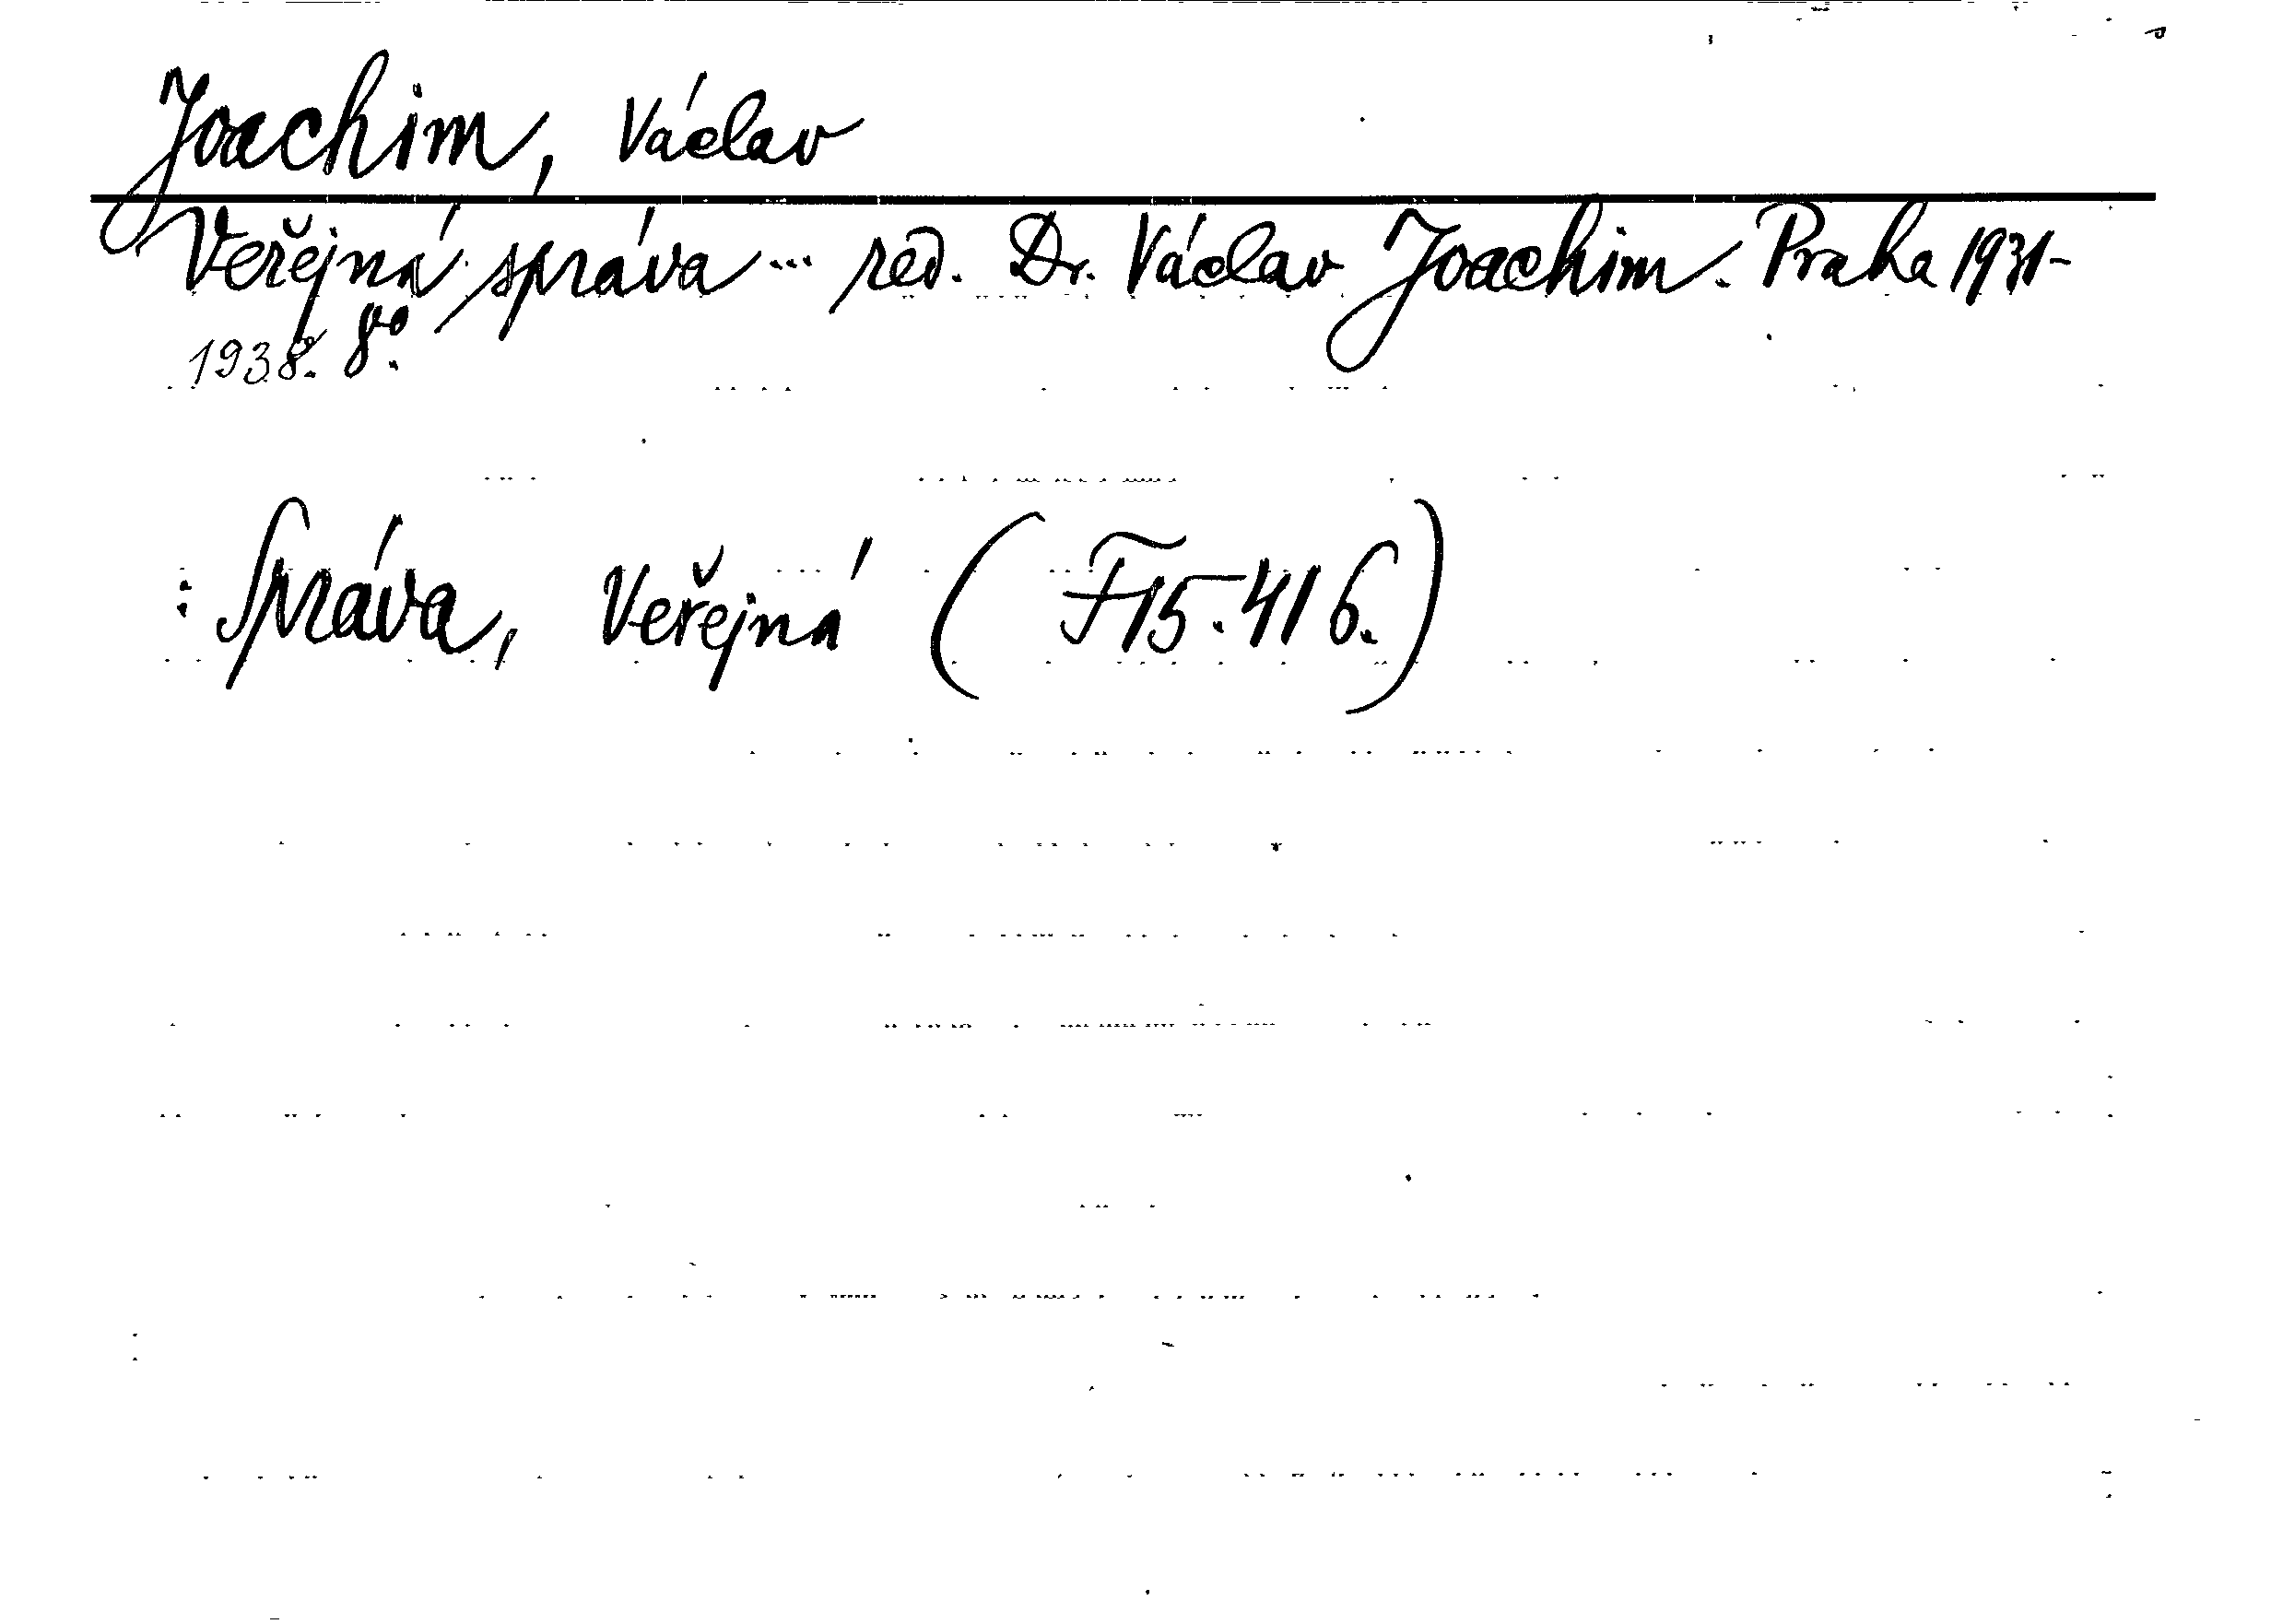 Joachim, Václav
Veřejná správa ... red. Dr. Václav Joachim. Praha 1931-
1938. 8º.
: Správa, Veřejná (F15.416.)